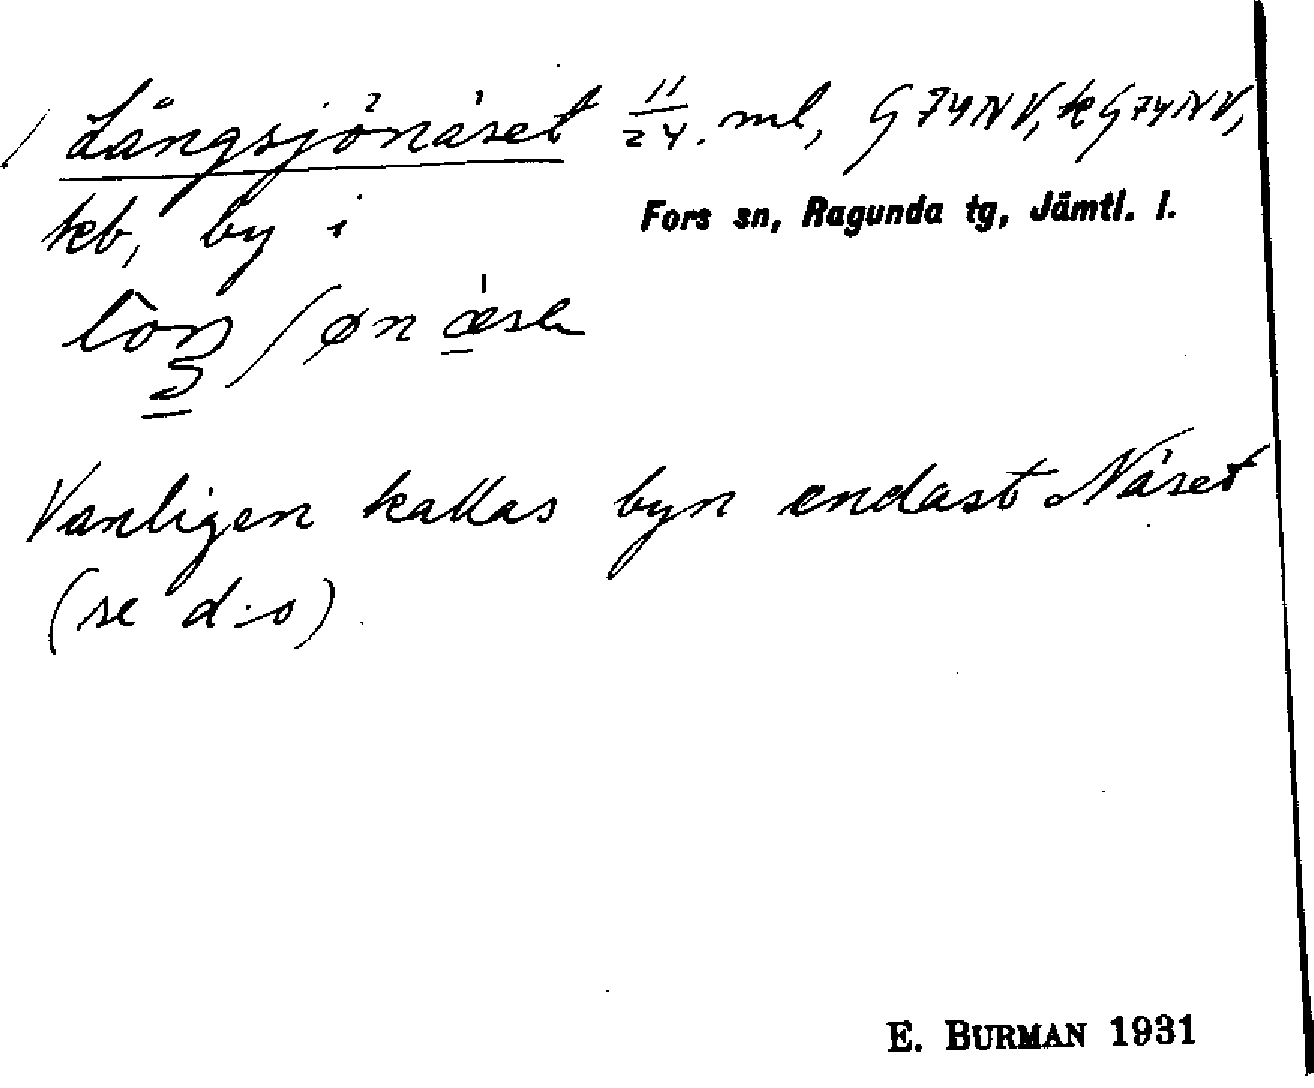 Långsjönäset 11/24. ml, G74NV, kG74NV,
kb, by i Fors sn, Ragunda tg, Jämtl. l.
Vanligen kallas byn endast Näset
(se d:o)
E. BURMAN 1931